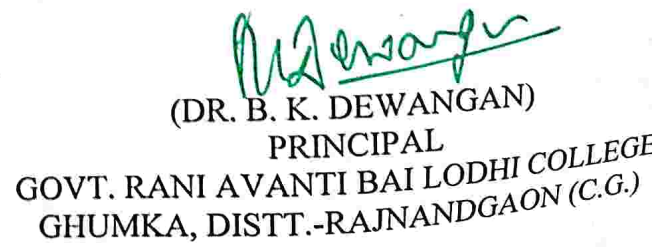 BKDewangan
(DR. B. K. DEWANGAN)
PRINCIPAL
GOVT. RANI AVANTI BAI LODHI COLLEGE
GHUMKA, DISTT.-RAJNANDGAON (C.G.)